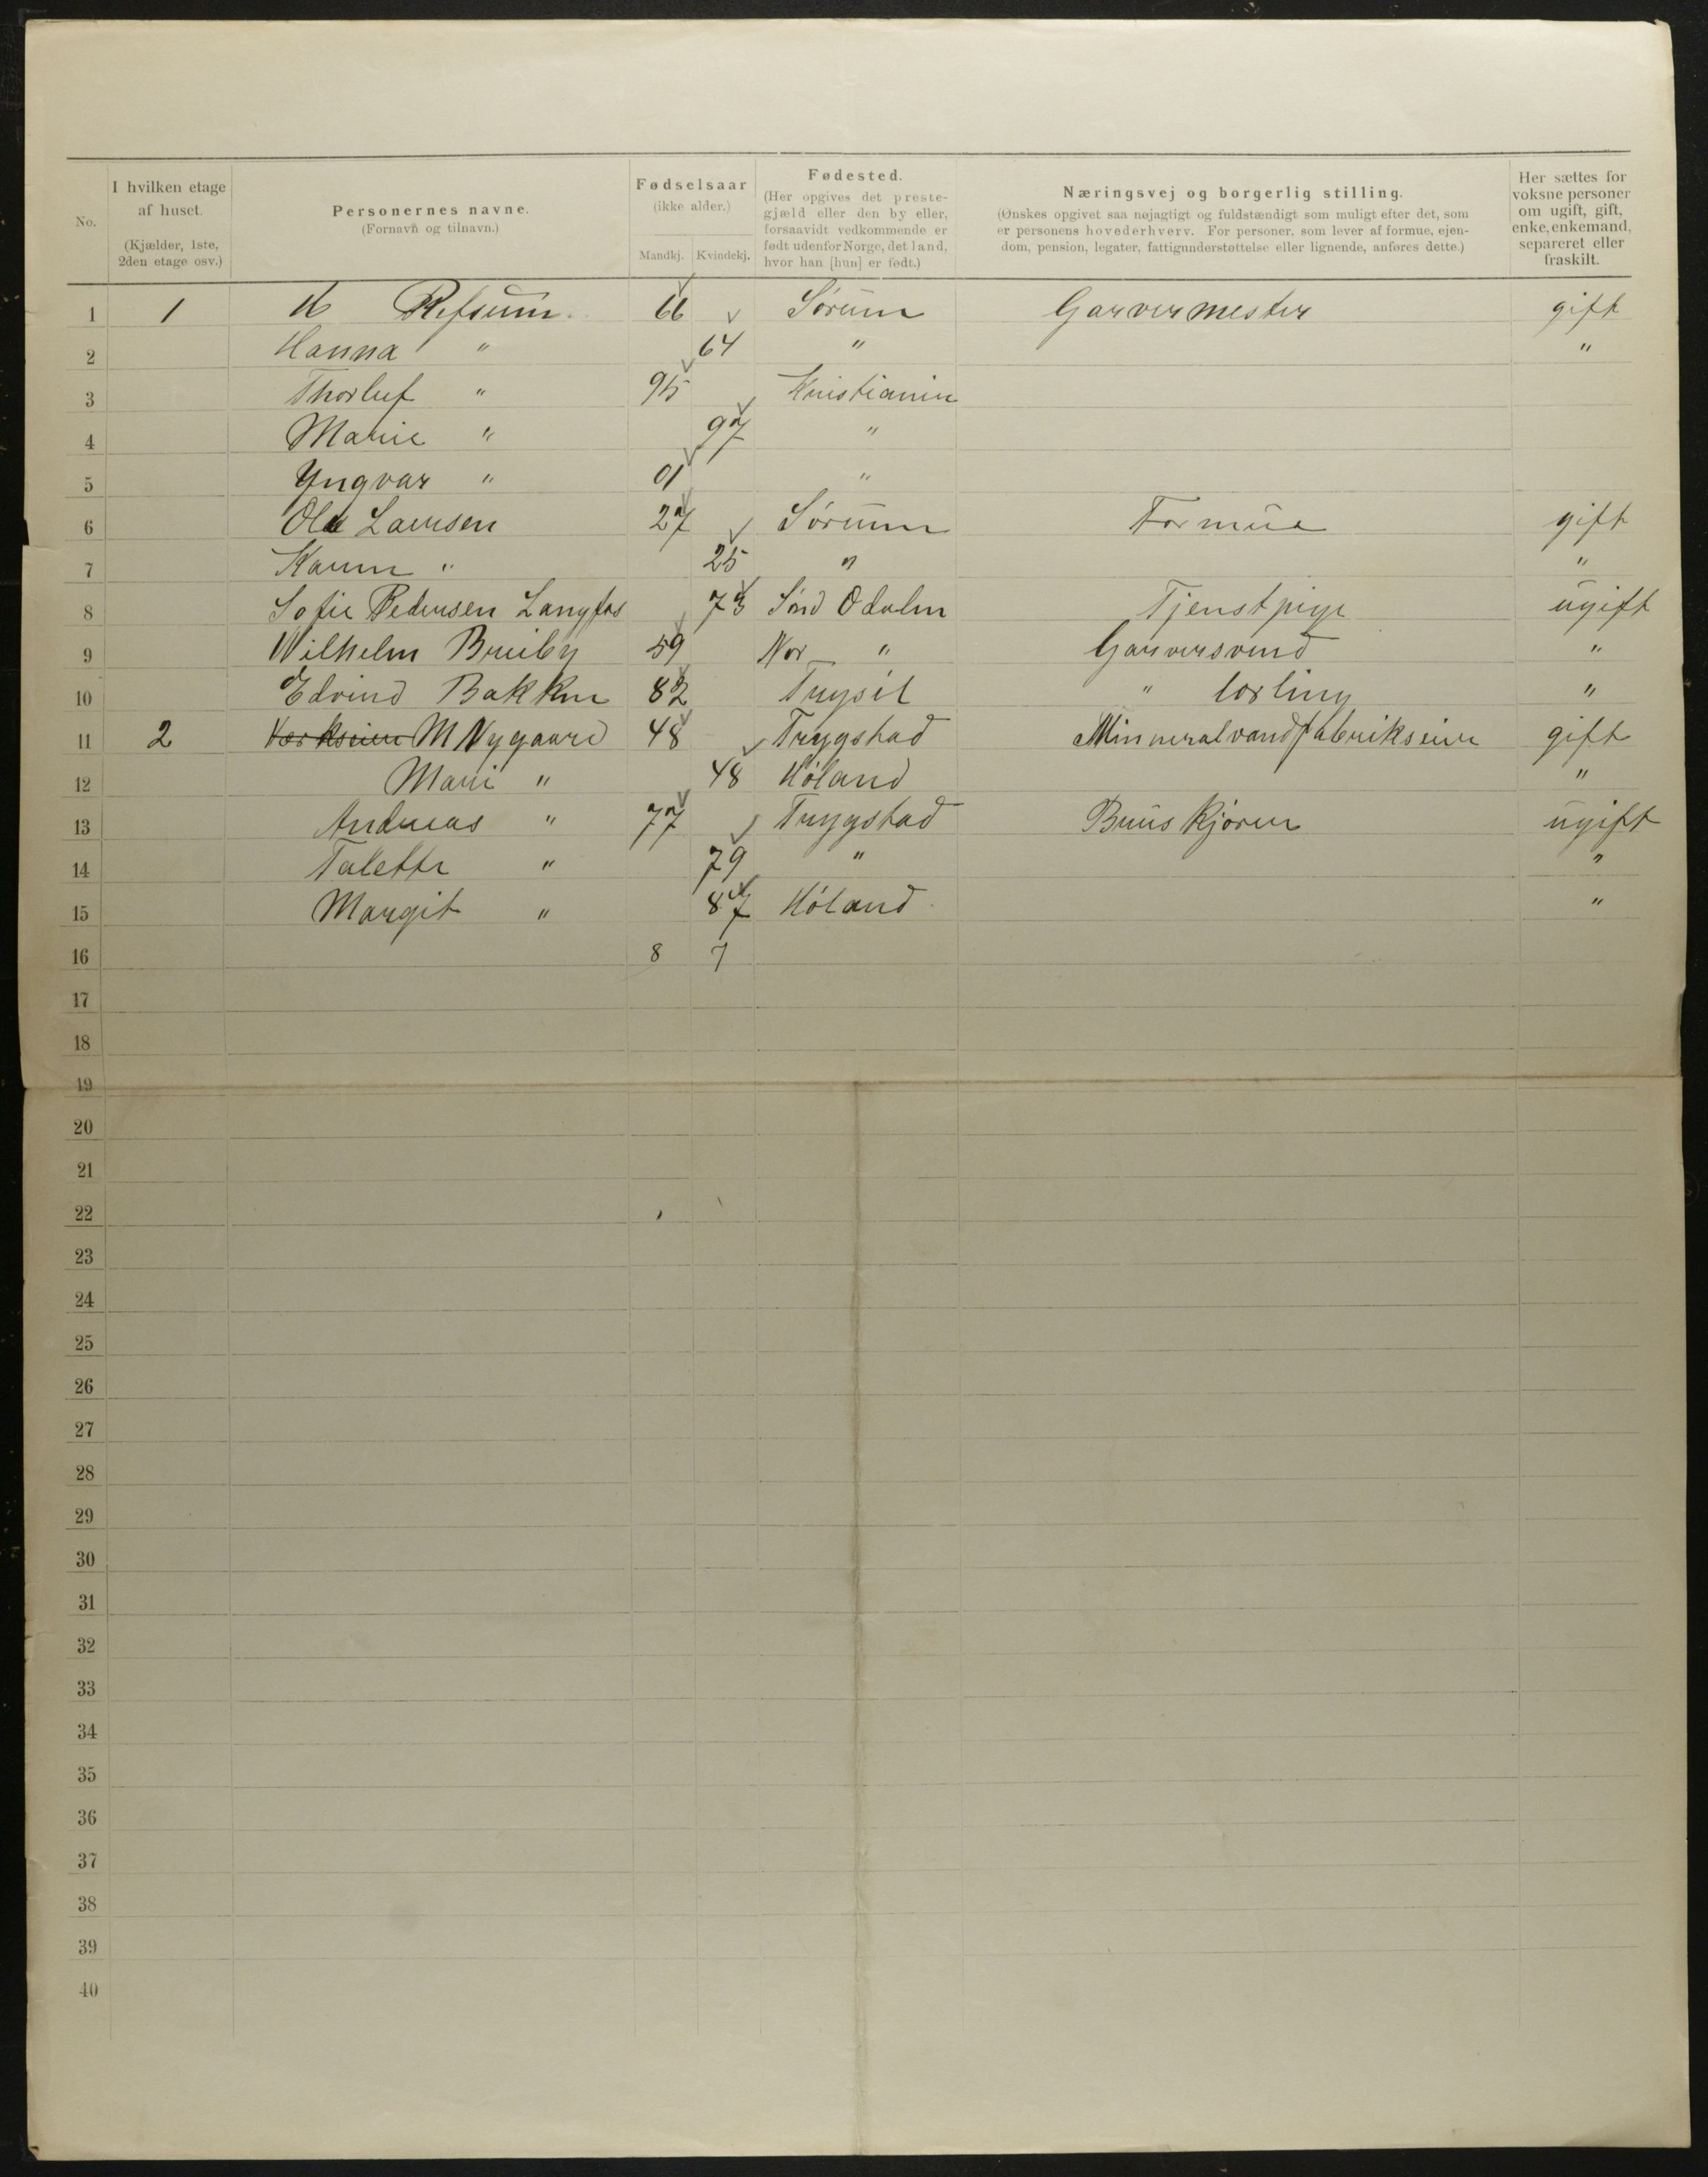 No.
I hvilken etage af huset. (Kjælder, 1ste, 2den etage osv.)
Personernes navne. (Fornavn og tilnavn.)
Fødselsaar (ikke alder.) Mandkj. Kvindekj.
Fødested. (Her opgives det prestegjæld eller den by eller, forsaavidt vedkommende er født udenfor Norge, det land, hvor han [hun] er født.)
Næringsvej og borgerlig stilling.
(Ønskes opgivet saa nøjagtigt og fuldstændigt som muligt efter det, som er personens hovederhverv. For personer, som lever af formue, ejendom, pension, legater, fattigunderstøttelse eller lignende, anføres dette.)
Her sættes for voksne personer om ugift, gift, enke, enkemand, separeret eller fraskilt.
1 1 Refsum 66 Sørum Garvermester gift
2 Hanna " 64 " "
3 Thorluf " 95 Kristiania
4 Marie " 97 "
5 Yngvar " 01 "
6 Ole Larsen 27 Sørum Formue gift
7 Karen " 25 " "
8 Sofie Pedersen Langfos 73 Sønd Odalen Tjenstpige ugift
9 Wilhelm Bruiby 59 Nor " Garversvend "
10 Edvind Bakken 82 Trysil " lærling "
11 2 Værkseier M Nygaard 48 Trygstad Minneralvandfabrikseier gift
12 Mari " 48 Høland "
13 Andreas " 77 Trygstad Bruuskjører ugift
14 Talette " 79 " "
15 Margit " 87 Høland "
16 8 7
17
18
19
20
21
22
23
24
25
26
27
28
29
30
31
32
33
34
35
36
37
38
39
40